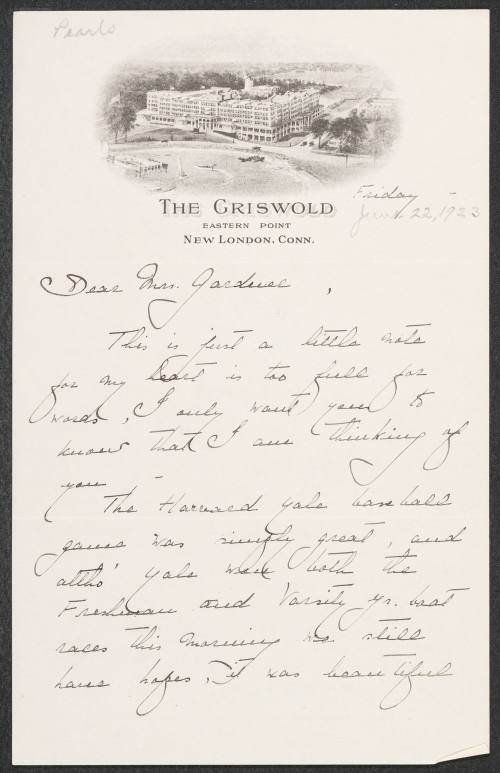 Pearls
THE GRISWOLD
EASTERN POINT
NEW LONDON, CONN.
Friday -
June 22, 1923
Dear Mrs. Gardner,
This is just a little note
for my heart is too full for
words, I only want you to
know that I am thinking of
you -
The Harvard Yale baseball
game was simply great, and
altho' Yale won both the
Freshman and Varsity Jr. boat
races this morning we still
have hopes, it was beautiful